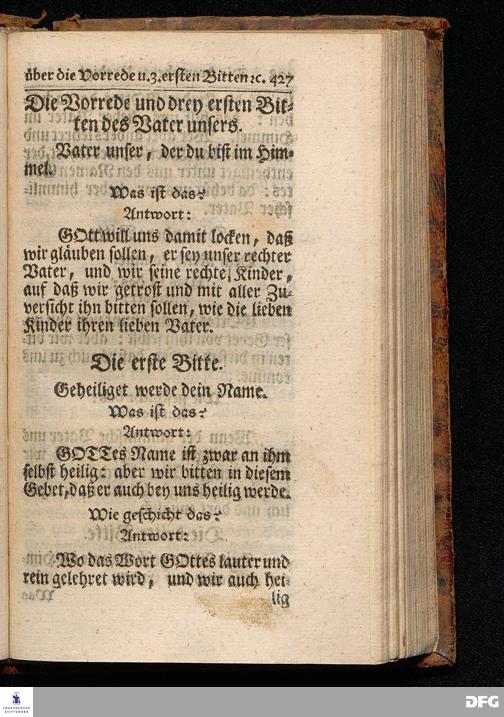 über die Vorrede u. 3. ersten Bitten ꝛc. 427
Die Vorrede und drey ersten Bit-
ten des Vater unsers.
Vater unser, der du bist im Him-
mel.
Was ist das?
Antwort:
GOtt will uns damit locken, daß
wir gläuben sollen, er sey unser rechter
Vater, und wir seine rechte Kinder,
auf daß wir getrost und mit aller Zu-
versicht ihn bitten sollen, wie die lieben
Kinder ihren lieben Vater.
Die erste Bitte.
Geheiliget werde dein Name.
Was ist das?
Antwort:
GOTTes Name ist zwar an ihm
selbst heilig: aber wir bitten in diesem
Gebet, daß er auch bey uns heilig werde.
Wie geschicht das?
Antwort:
Wo das Wort GOttes lauter und
rein gelehret wird, und wir auch hei-
lig
FRANCKESCHE
STIFTUNGEN
DFG